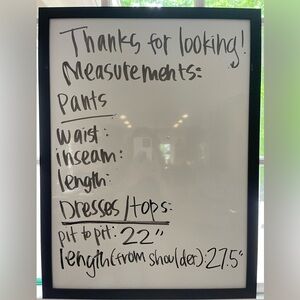 Thanks for looking!
Measurements:
Pants
waist:
inseam:
length:
Dresses/tops:
pit to pit: 22"
length(from shoulder): 27.5"